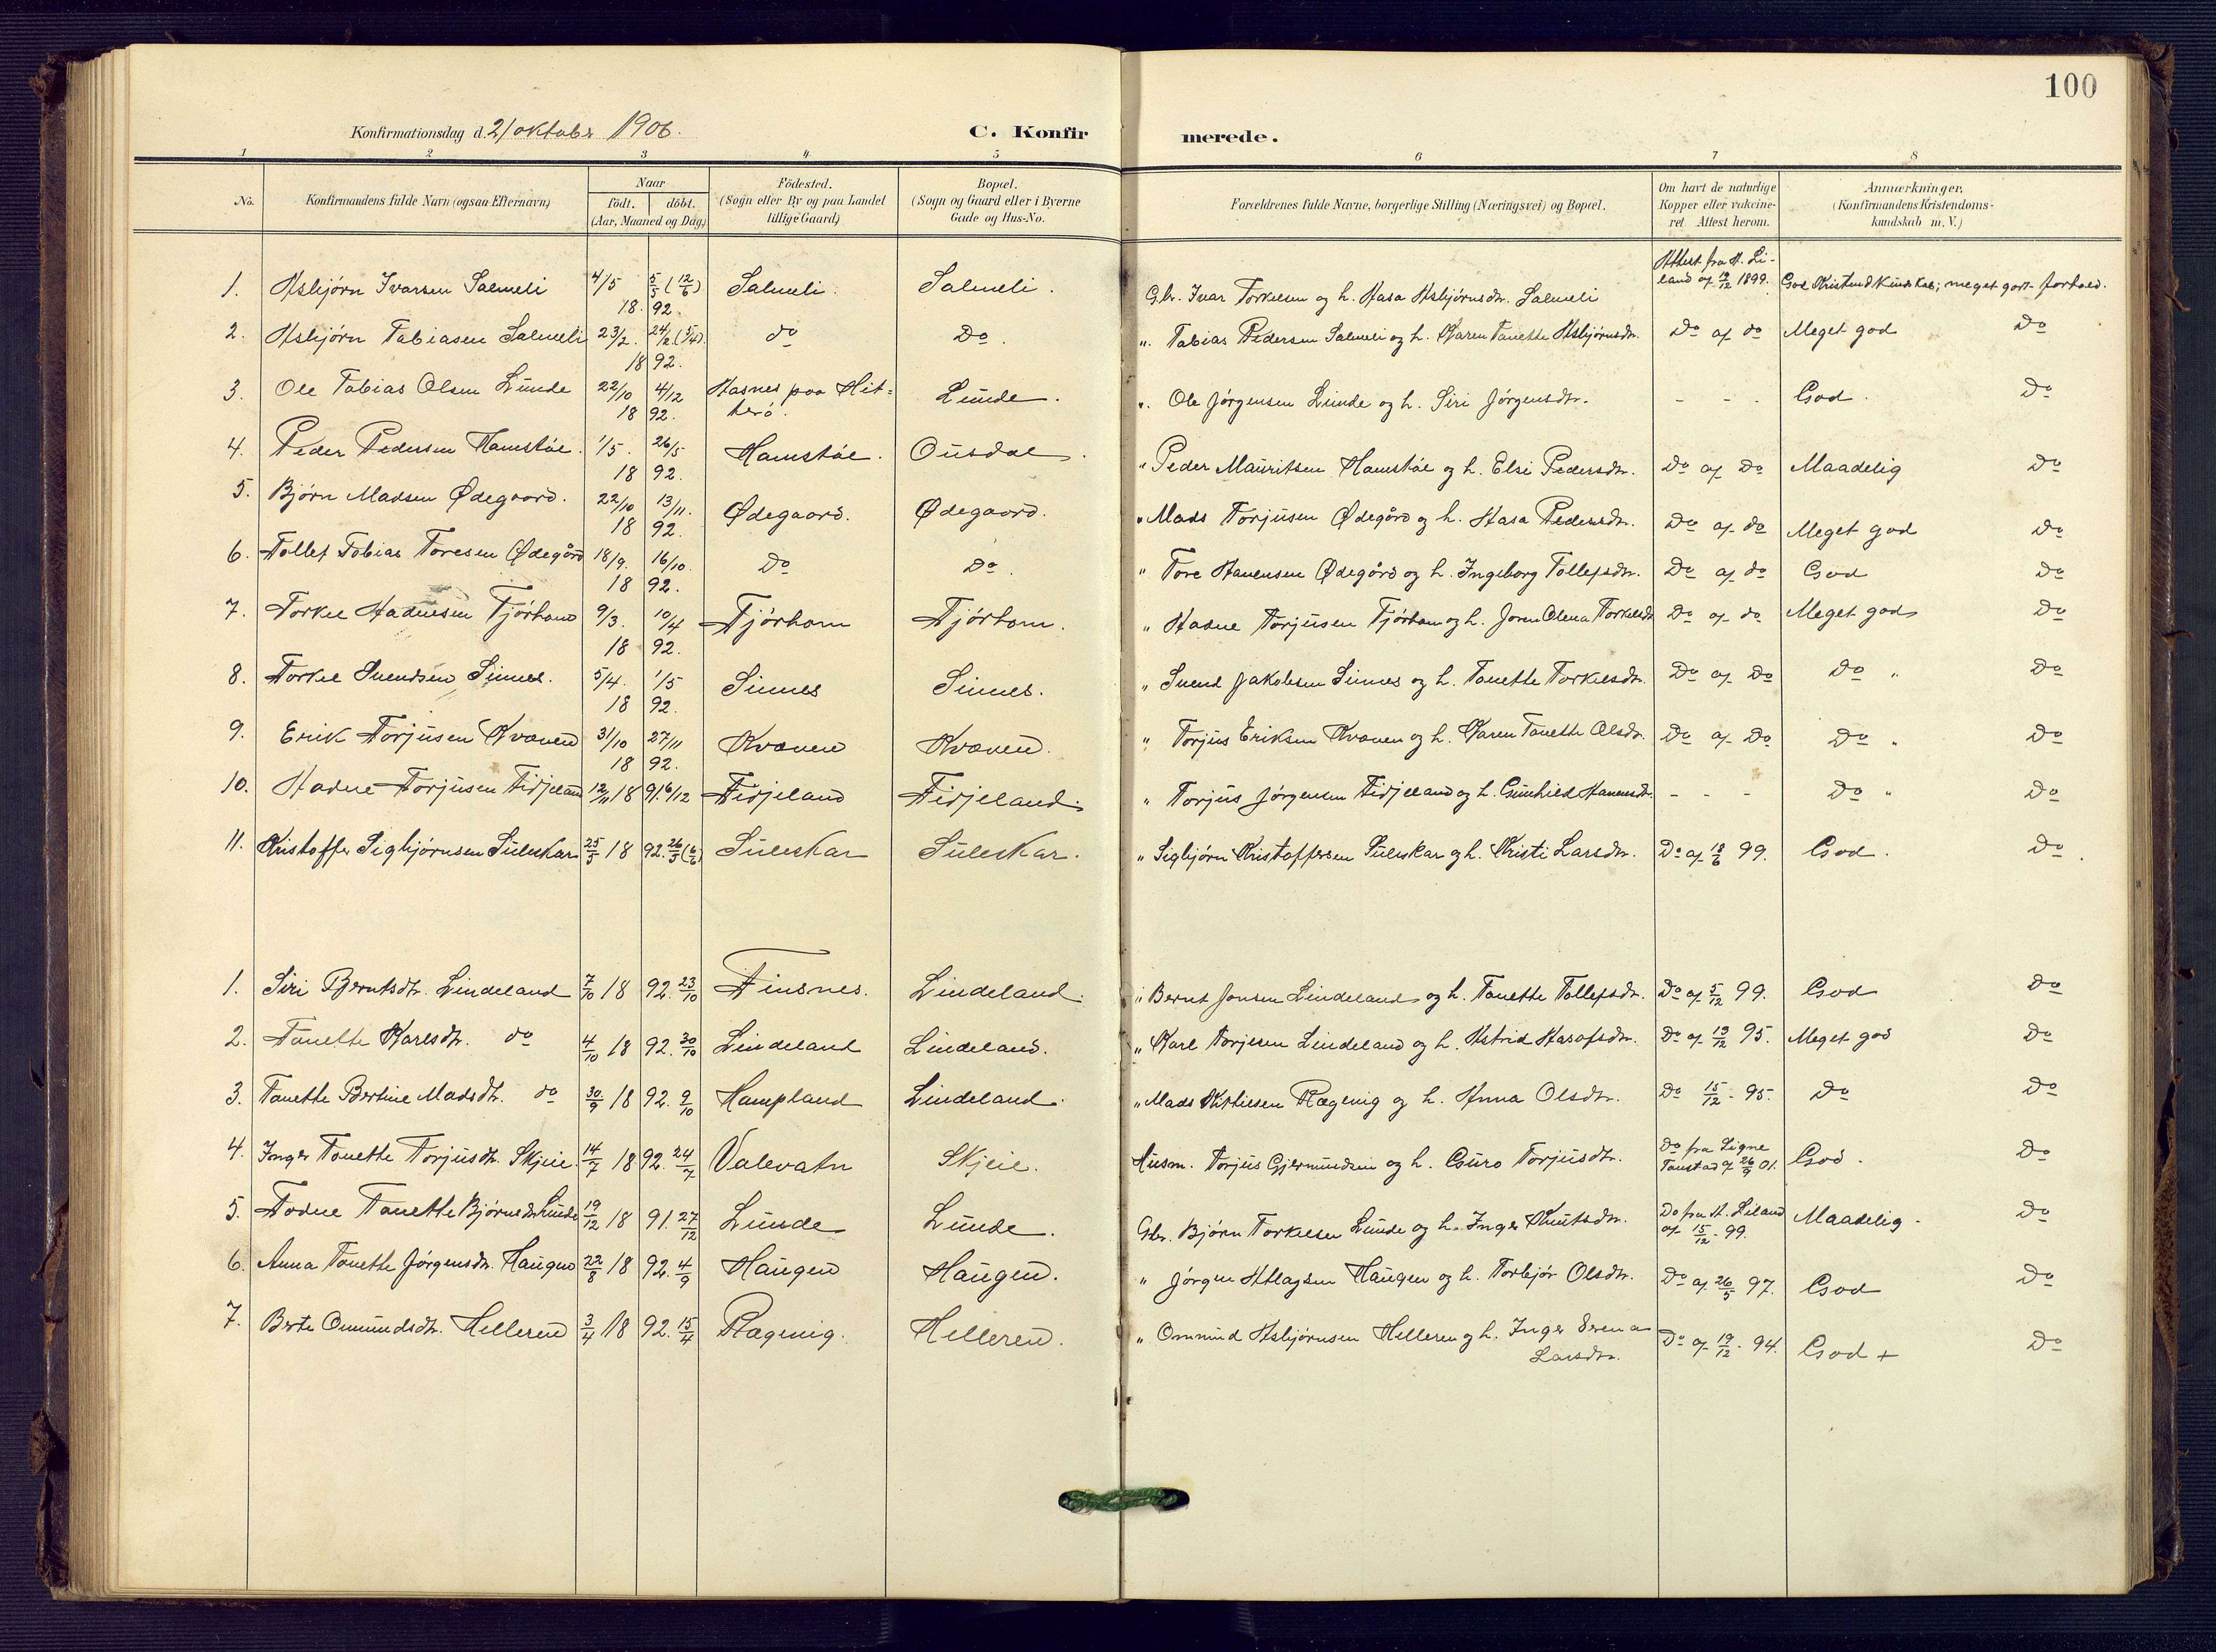 100
Konfirmationsdag d. 21 oktober 1906.
C. Konfirmerede.
1 2 3 4 5 6 7 8
No. Konfirmandens fulde Navn (ogsaa Efternavn) Naar födt. döbt. (Aar, Maaned og Dag) Födested. (Sogn eller By og paa Landet tillige Gaard) Bopæl. (Sogn og Gaard eller i Byerne Gade og Hus-No. Forældrenes fulde Navne, borgerlige Stilling (Næringsvei) og Bopæl. Om havt de naturlige Kopper eller vakcineret Attest herom. Anmærkninger, (Konfirmandens Kristendomskundskab m. V.)
1. Asbjørn Ivarsen Salmeli 4/5 5/5 (12/6) 1892. Salmeli. Salmeli. Gbr. Ivar Torkelsen og h. Aasa Asbjørnsdr. Salmeli Attest fra A. Liland af 19/12 1899. God Kristendkundskab; meget godt forhold.
2. Asbjørn Tobiasen Salmeli 23/2. 24/2 (5/4). 1892. do Do. ". Tobias Pedersen Salmeli og h. Karen Tonette Asbjørnsdr. Do af do Meget god Do
3. Ole Tobias Olsen Lunde 22/10 4/12 1892. Aasnes paa Hitterö. Lunde. ". Ole Jørgensen Lunde og h. Siri Jørgensdtr. - - - God. Do
4. Peder Pedersen Hamstøl. 1/5. 26/5 1892. Hamstøl. Ousdal. " Peder Mauritsen Hamstøl og h. Elsi Pedersdtr. Do af Do Maadelig Do
5. Bjørn Madsen Ødegaard. 22/10 13/11. 1892. Ødegaard. Ødegaard. " Mads Torjusen Ødegård og h. Aasa Pedersdtr. Do af do Meget god Do
6. Tollef Tobias Toresen Ødegård 18/9. 16/10. 1892. Do Do. " Tore Hanensen Ødegård og h. Ingeborg Tollefsdtr. Do af do God Do
7. Torkel Aadnesen Tjörhom 9/3. 10/4 1892. Tjörhom Tjörhom. " Aadne Torjusen Tjörhom og h. Joren Olena Torkelsdtr Do af do Meget god Do
8. Torkel Svendsen Sinnes. 5/4. 1/5 1892. Sinnes Sinnes. " Svend Jakobsen Sinnes og h. Tonette Torkelsdtr. Do af Do Do " Do
9. Erik Torjusen Kvænen 31/10 27/11 1892. Kvænen Kvænen. " Torjus Eriksen Kvænen og h. Karen Tonette Olsdtr. Do af Do Do " Do
10. Aadne Torjusen Fidjeland 12/11 1891. 6/12 Fidjeland Fidjeland. " Torjus Jørgensen Fidjeland og h. Gunhild Hanensdtr. - - - Do " Do
11. Kristoffer Sigbjørnsen Suleskar 25/5 1892. 26/5 (6/6) Suleskar Suleskar. " Sigbjørn Kristoffersen Suleskar og h. Kristi Larsdtr. Do af 13/6 99. God. Do.
1. Siri Berntsdtr. Lindeland 7/10 1892. 23/10 Finsnes. Lindeland. " Bernt Jonsen Lindeland og h. Tonette Tollefsdtr. Do af 5/12 99. God Do
2. Tonette Karlsdtr. do 4/10 1892. 30/10 Lindeland Lindeland. " Karl Torjesen Lindeland og h. Astrid Aasafsdtr. Do af 13/12 95. Meget god Do
3. Tonette Bertine Madsdtr. do 30/9 1892. 9/10 Hampland Lindeland. " Mads Kittilsen Rægevig og h. Anna Olsdtr. Do 15/12 - 95. Do Do
4. Inger Tonette Torjusdtr. Skjeie. 14/7 1892. 24/7 Valevatn Skjeie. Husm. Torjus Gjermundsen og h. Guro Torjusdtr. Do fra Signe Tonstad af 26/9 01. God. Do
5. Todne Tonette Bjørnsdtr Lunde 19/12 1891. 27/12 Lunde Lunde. Gbr. Bjørn Torkelsen Lunde og h. Inger Knutsdtr. Do fra A. Liland af 15/12 - 99. Maadelig. Do
6. Anna Tonette Jørgensdtr. Haugen 22/8 1892. 4/9 Haugen Haugen. " Jörgen Atlagsen Haugen og h. Torbjör Olsdtr. Do af 26/5 97. God Do
7. Berte Ommundsdtr. Helleren 3/4 1892. 15/4 Rægevig. Helleren. " Ommund Asbjørnsen Helleren og h. Inger Serena Larsdtr. Do af 19/12 - 94. God + Do